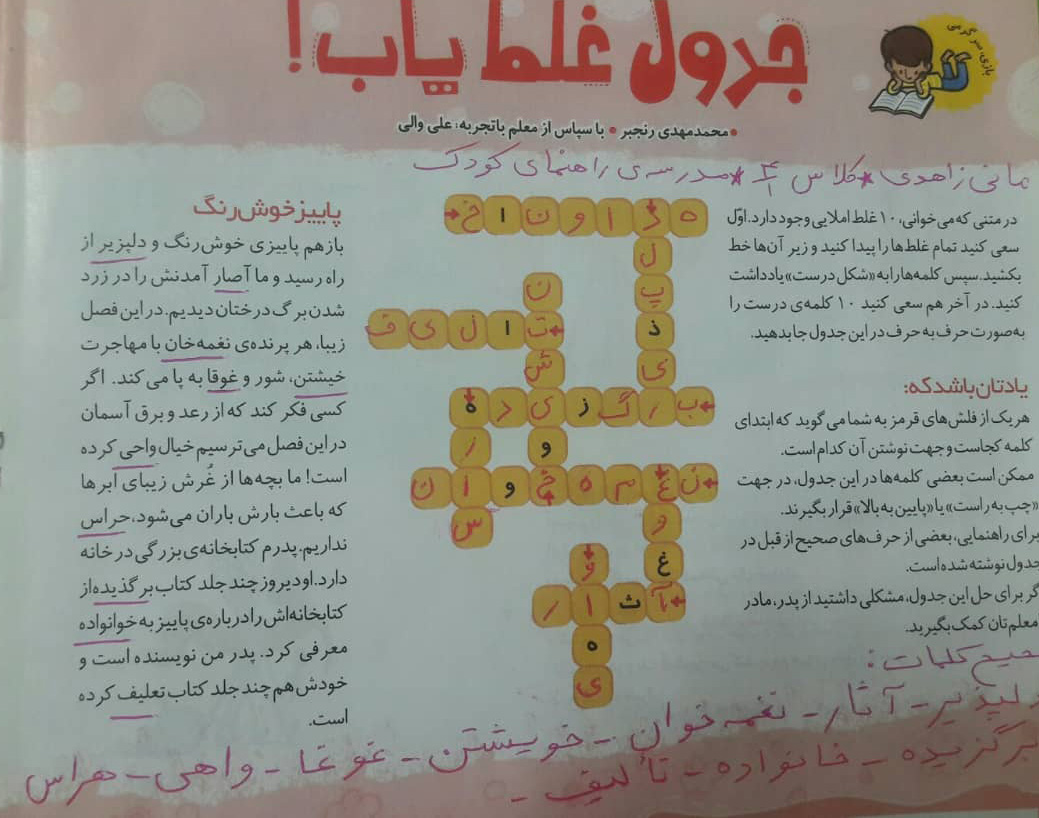 جدول غلط یاب!
بازی، سرگرمی
• محمدمهدی رنجبر • با سپاس از معلم باتجربه: علی والی
مانی زاهدی * کلاس ۴/۱ * مدرسه‌ی راهنمای کودک
در متنی که می‌خوانی، ۱۰ غلط املایی وجود دارد. اوّل
سعی کنید تمام غلط‌ها را پیدا کنید و زیر آن‌ها خط
بکشید. سپس کلمه‌ها را به «شکل درست» یادداشت
کنید. در آخر هم سعی کنید ۱۰ کلمه‌ی درست را
به‌صورت حرف به حرف در این جدول جا بدهید.
یادتان باشد که:
هر یک از فلش‌های قرمز به شما می گوید که ابتدای
کلمه کجاست و جهت نوشتن آن کدام است.
ممکن است بعضی کلمه‌ها در این جدول، در جهت
«چپ به راست» یا «پایین به بالا» قرار بگیرند.
برای راهنمایی، بعضی از حرف‌های صحیح از قبل در
جدول نوشته شده است.
گر برای حل این جدول، مشکلی داشتید از پدر، مادر
معلم‌تان کمک بگیرید.
ه د ا و ن ا خ
ل
ن پ
ت ا ل ی ف ذ
ش ی
ب ر گ ز ی د ه
ر و
ن غ م ه خ و ا ن
س و
و غ
آ ث ا ر
ه
ی
پاییز خوش‌رنگ
باز هم پاییزی خوش‌رنگ و دلپزیر از
راه رسید و ما آصار آمدنش را در زرد
شدن برگ درختان دیدیم. در این فصل
زیبا، هر پرنده‌ی نغمه‌خان با مهاجرت
خیشتن، شور و غوقا به پا می کند. اگر
کسی فکر کند که از رعد و برق آسمان
در این فصل می‌ترسیم خیال واحی کرده
است! ما بچه‌ها از غُرش زیبای ابرها
که باعث بارش باران می‌شود، حراس
نداریم. پدرم کتابخانه‌ی بزرگی در خانه
دارد. او دیروز چند جلد کتاب برگذیده از
کتابخانه‌اش را درباره‌ی پاییز به خوانواده
معرفی کرد. پدر من نویسنده است و
خودش هم چند جلد کتاب تعلیف کرده
است.
کلمات:
لپذیر - آثار - نغمه خوان - خویشتن - غوغا - واهی - هراس
برگزیده - خانواده - تألیف -